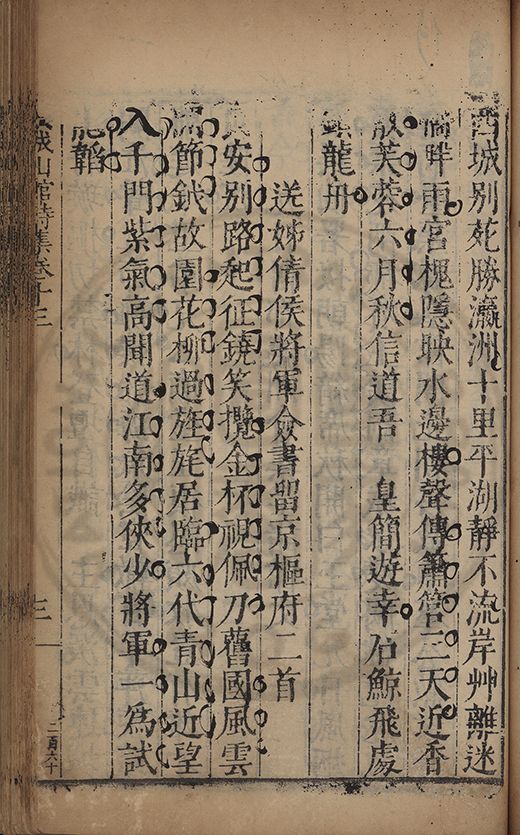 城別苑勝瀛洲十里平湖靜不流岸艸離迷
畔雨宮槐隱映水邊樓聲傳簫管三天近香
散芙蓉六月秋信道吾 皇簡遊幸石鯨飛處
龍舟
送姊倩侯將軍僉書留京樞府二首
安別路起征鐃笑攬金杯視佩刀舊國風雲
節鉞故園花柳過旌旄居臨六代青山近望
入千門紫氣高聞道江南多俠少將軍一為試
龍韜
城山館詩集卷十三 三 二百六十